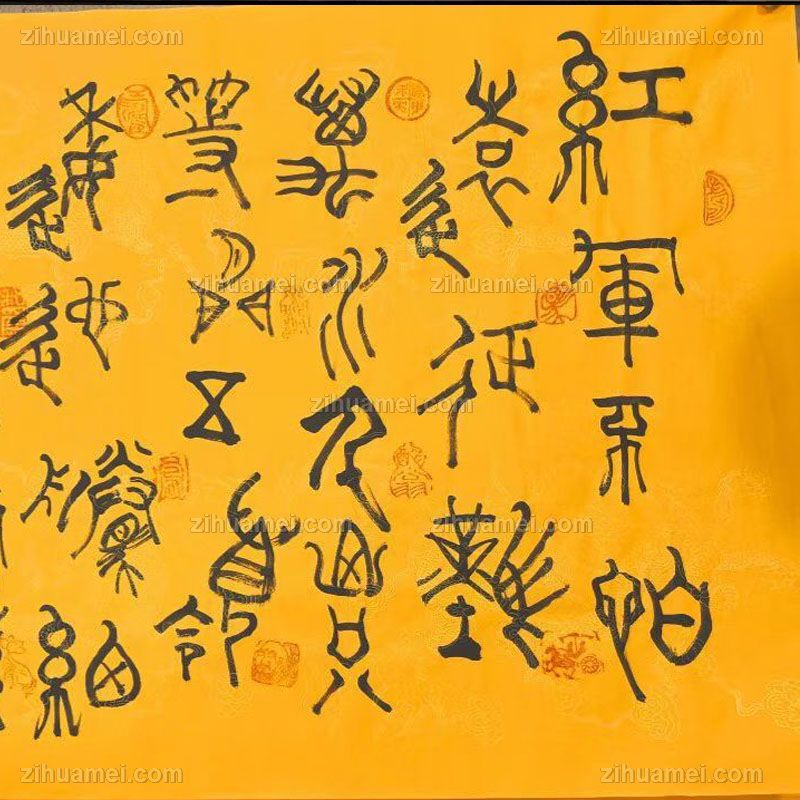 紅軍不怕
遠征難
萬水千山只
等閒五嶺
逶迤騰細
zihuamei.com
zihuamei.com
zihuamei.com
zihuamei.com
zihuamei.com
zihuamei.com
zihuamei.com
zihuamei.com
zihuamei.com
zihuamei.com
zihuamei.com